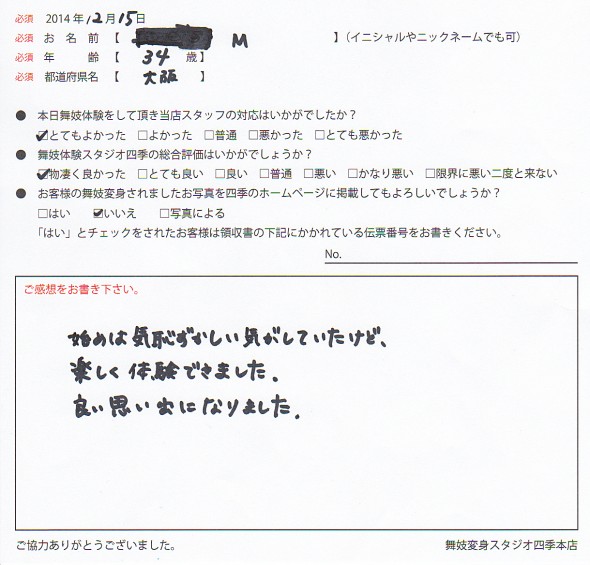 必須 2014年12月15日
必須 お名前【 M 】(イニシャルやニックネームでも可)
必須 年齢【 34 歳】
必須 都道府県名【 大阪 】
● 本日舞妓体験をして頂き当店スタッフの対応はいかがでしたか?
☑とてもよかった □よかった □普通 □悪かった □とても悪かった
● 舞妓体験スタジオ四季の総合評価はいかがでしょうか?
☑物凄く良かった □とても良い □良い □普通 □悪い □かなり悪い □限界に悪い二度と来ない
● お客様の舞妓変身されましたお写真を四季のホームページに掲載してもよろしいでしょうか?
□はい ☑いいえ □写真による
「はい」とチェックをされたお客様は領収書の下記にかかれている伝票番号をお書きください。
No.
ご感想をお書き下さい。
始めは気恥ずかしい気がしていたけど、
楽しく体験できました。
良い思い出になりました。
ご協力ありがとうございました。
舞妓変身スタジオ四季本店